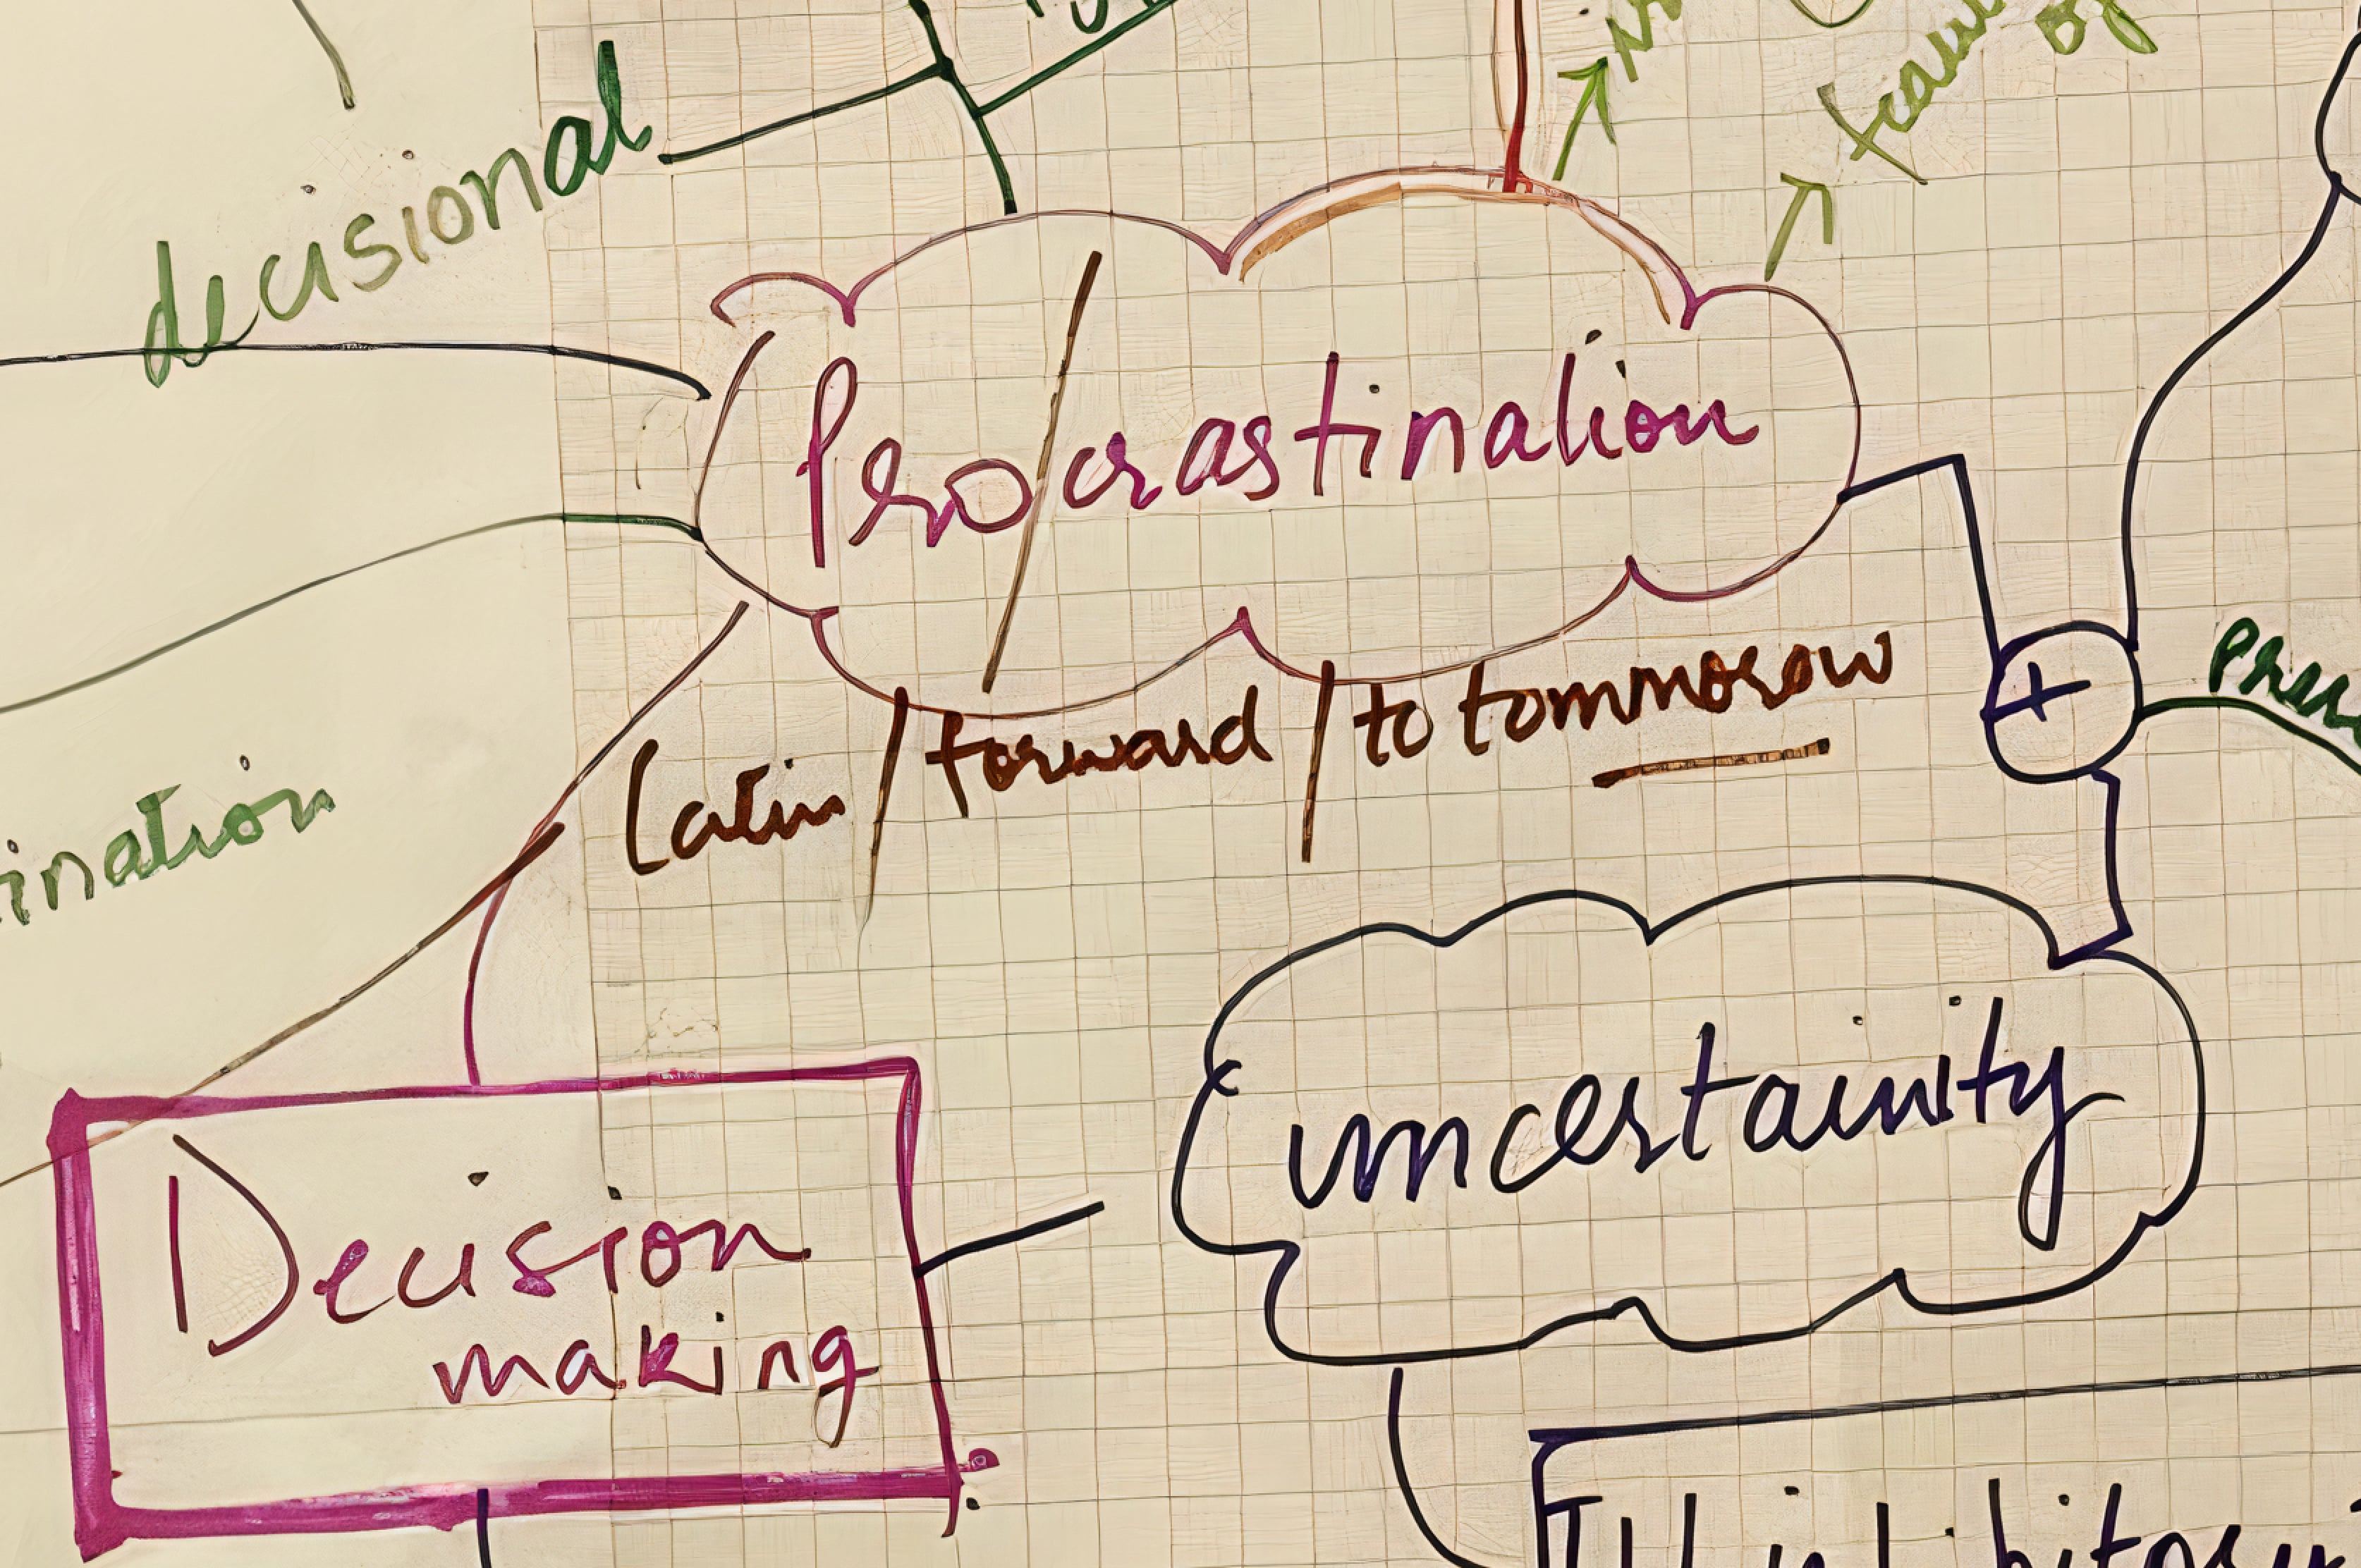 decisional
Pro/crastination
Latin/forward/to tommorow
+
ination
uncertainity
Decision
making